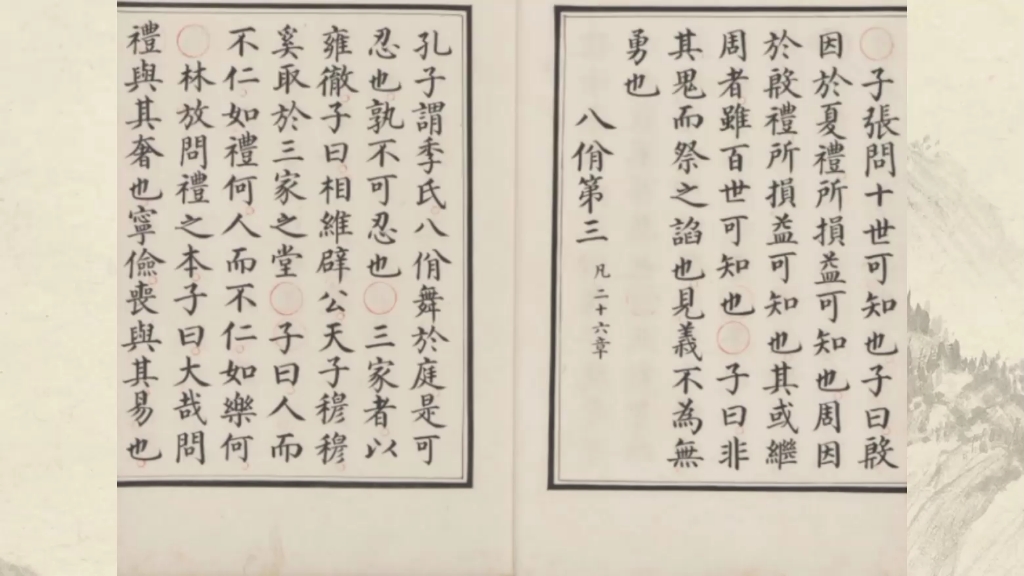 ○子張問十世可知也子曰殷
因於夏禮所損益可知也周因
於殷禮所損益可知也其或繼
周者雖百世可知也○子曰非
其鬼而祭之諂也見義不為無
勇也
八佾第三 凡二十六章
孔子謂季氏八佾舞於庭是可
忍也孰不可忍也○三家者以
雍徹子曰相維辟公天子穆穆
奚取於三家之堂○子曰人而
不仁如禮何人而不仁如樂何
○林放問禮之本子曰大哉問
禮與其奢也寧儉喪與其易也